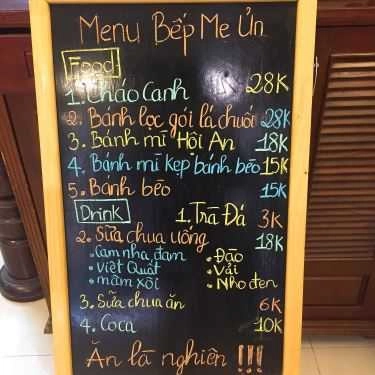 Menu Bếp Mẹ Ủn
Food
1. Cháo Canh 28K
2. Bánh lọc gói lá chuối 28K
3. Bánh mì Hội An 18K
4. Bánh mì kẹp bánh bèo 15K
5. Bánh bèo 15K
Drink
1. Trà Đá 3K
2. Sữa chua uống 18K
• Cam nha đam • Đào
• Việt Quất • Vải
• mâm xôi • Nho đen
3. Sữa chua ăn 6K
4. Coca 10K
Ăn là nghiền !!!